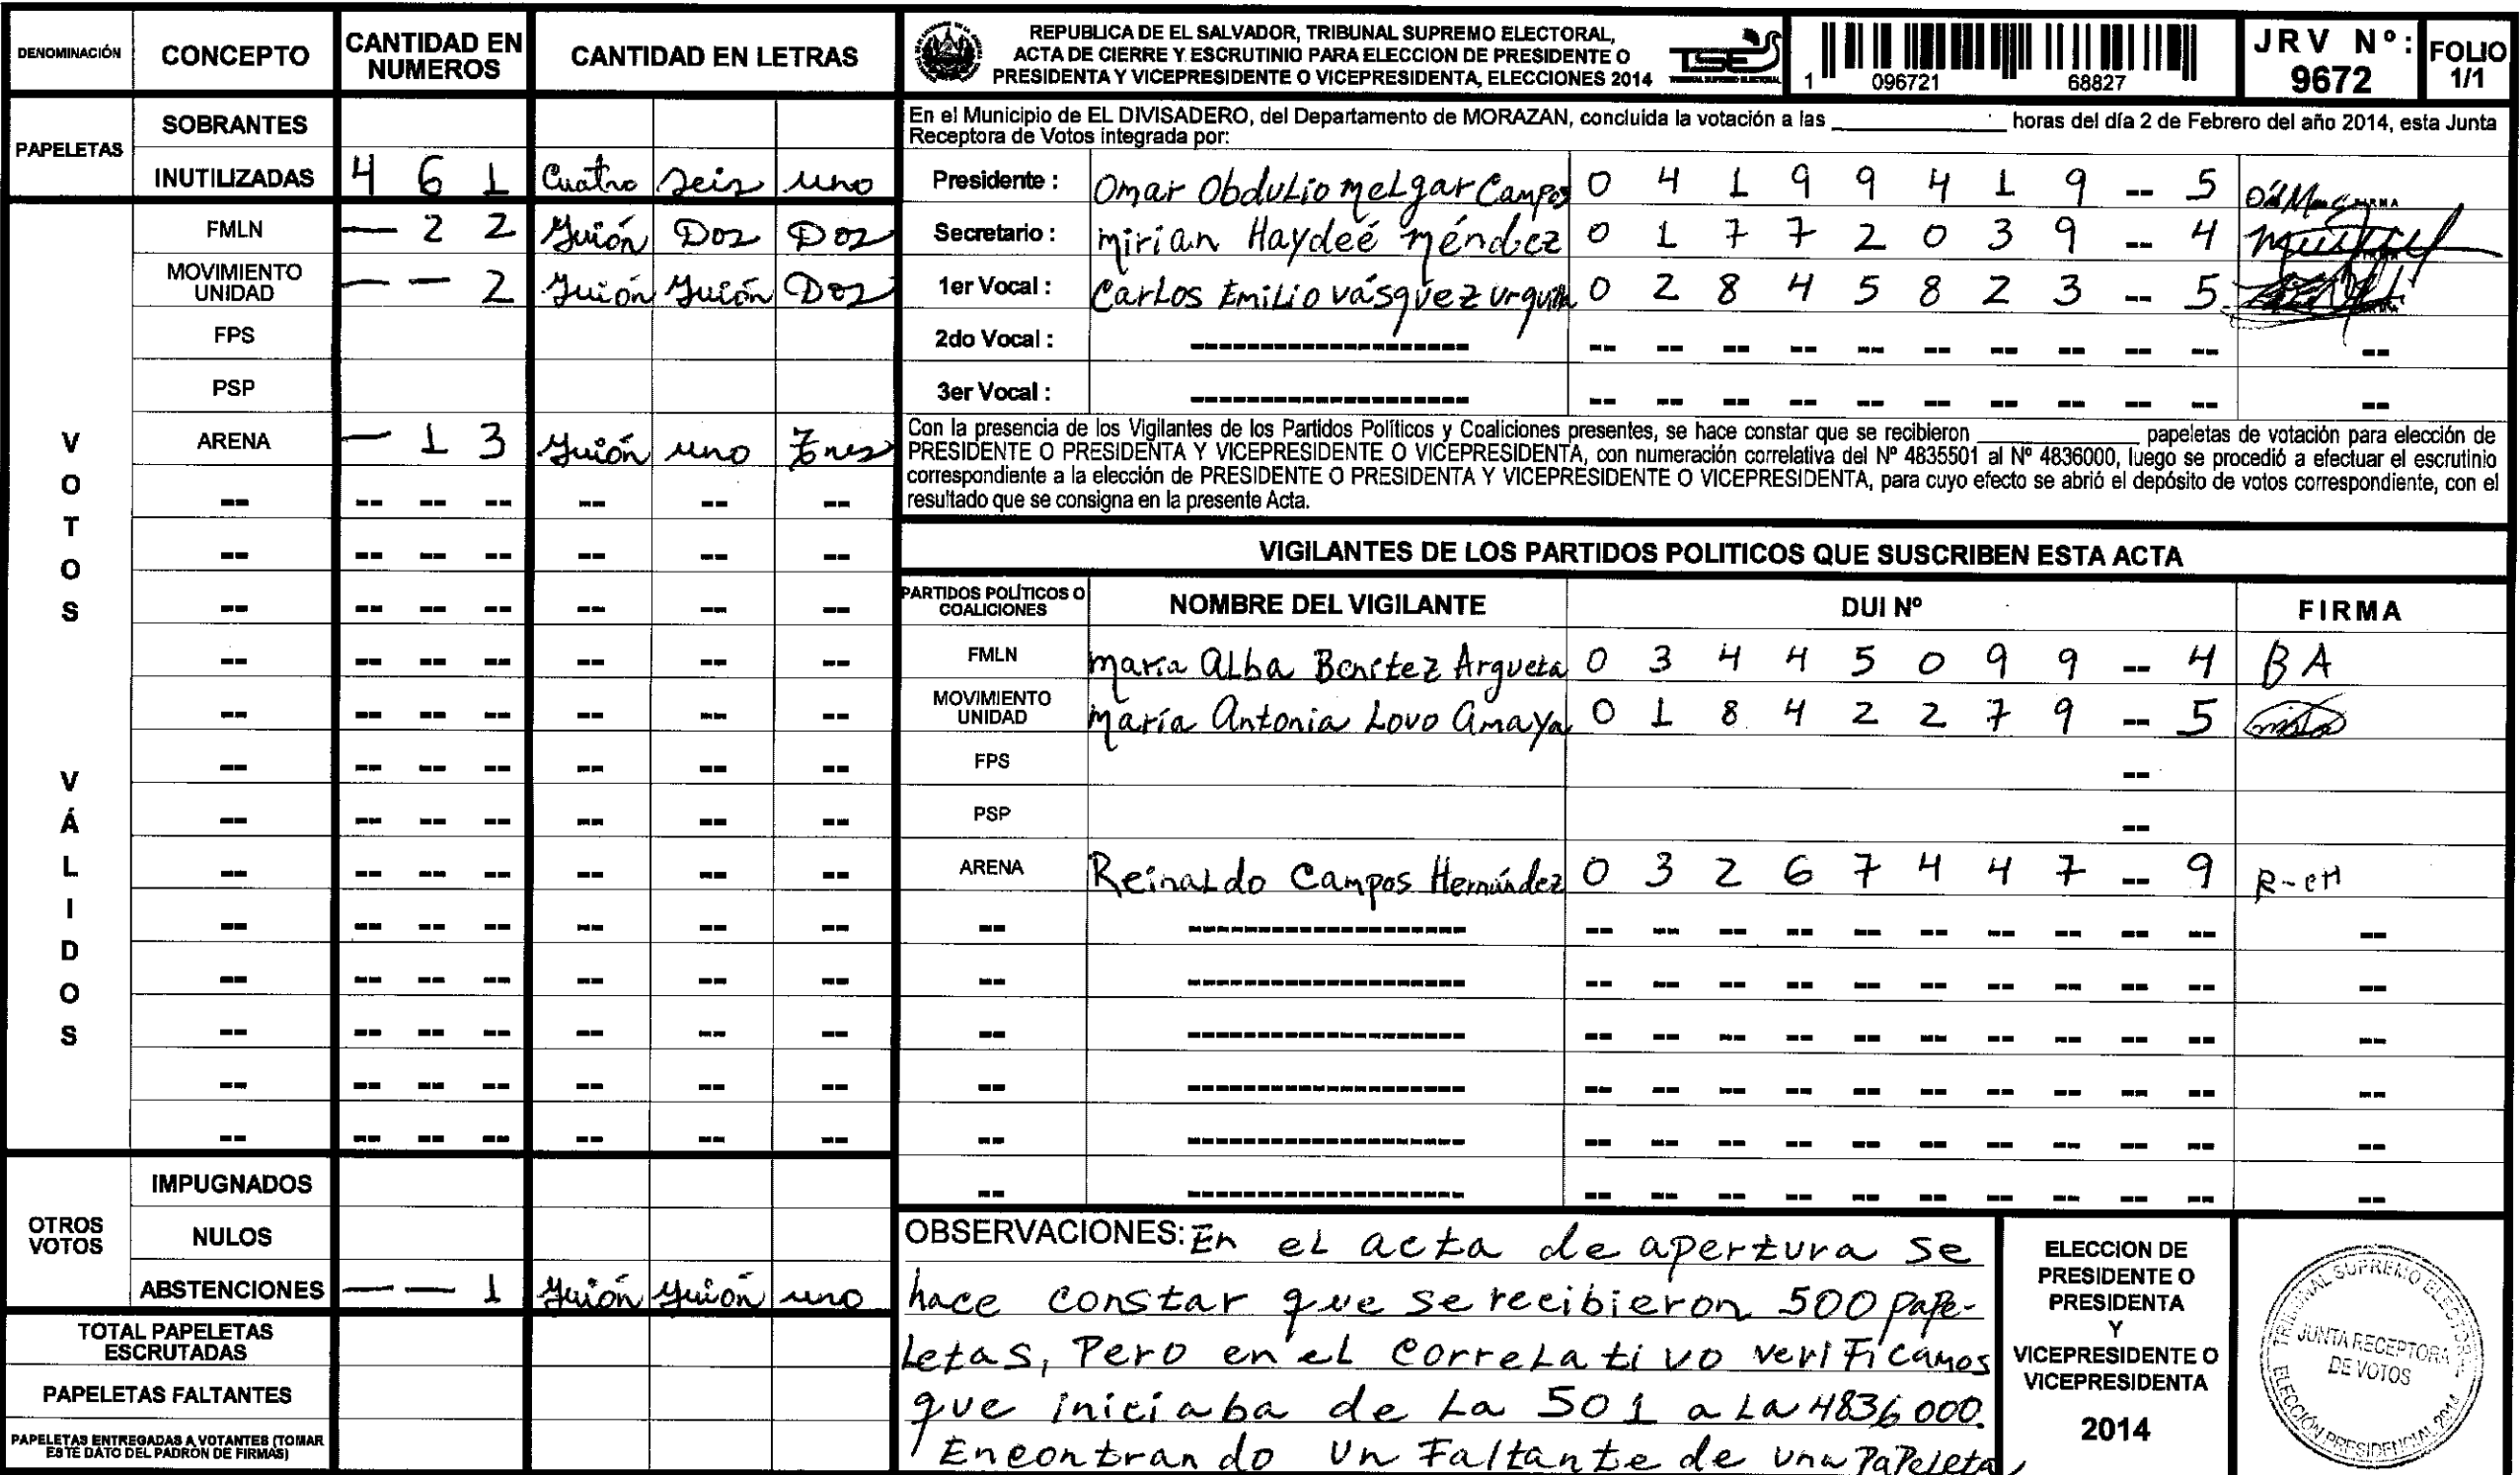 DENOMINACIÓN CONCEPTO CANTIDAD EN NUMEROS CANTIDAD EN LETRAS
PAPELETAS
SOBRANTES
INUTILIZADAS 4 6 1 Cuatro seis uno
VOTOS VÁLIDOS
FMLN — 2 2 Guión Dos Dos
MOVIMIENTO UNIDAD — — 2 Guión Guión Dos
FPS
PSP
ARENA — 1 3 Guión uno tres
-- -- -- -- -- -- --
-- -- -- -- -- -- --
-- -- -- -- -- -- --
-- -- -- -- -- -- --
-- -- -- -- -- -- --
-- -- -- -- -- -- --
-- -- -- -- -- -- --
-- -- -- -- -- -- --
-- -- -- -- -- -- --
-- -- -- -- -- -- --
-- -- -- -- -- -- --
-- -- -- -- -- -- --
-- -- -- -- -- -- --
OTROS VOTOS
IMPUGNADOS
NULOS
ABSTENCIONES — — 1 Guión Guión uno
TOTAL PAPELETAS ESCRUTADAS
PAPELETAS FALTANTES
PAPELETAS ENTREGADAS A VOTANTES (TOMAR
ESTE DATO DEL PADRÓN DE FIRMAS)
REPUBLICA DE EL SALVADOR, TRIBUNAL SUPREMO ELECTORAL,
ACTA DE CIERRE Y ESCRUTINIO PARA ELECCION DE PRESIDENTE O
PRESIDENTA Y VICEPRESIDENTE O VICEPRESIDENTA, ELECCIONES 2014
TSE
TRIBUNAL SUPREMO ELECTORAL
1 096721 68827
JRV Nº: 9672
FOLIO 1/1
En el Municipio de EL DIVISADERO, del Departamento de MORAZAN, concluida la votación a las ____________ horas del día 2 de Febrero del año 2014, esta Junta
Receptora de Votos integrada por:
Presidente : Omar Obdulio Melgar Campos 0 4 1 9 9 4 1 9 -- 5
Secretario : Mirian Haydeé Méndez 0 1 7 7 2 0 3 9 -- 4
1er Vocal : Carlos Emilio Vásquez 0 2 8 4 5 8 2 3 -- 5
2do Vocal : -------------------- -- -- -- -- -- -- -- -- -- -- --
3er Vocal : -------------------- -- -- -- -- -- -- -- -- -- -- --
Con la presencia de los Vigilantes de los Partidos Políticos y Coaliciones presentes, se hace constar que se recibieron ____________ papeletas de votación para elección de
PRESIDENTE O PRESIDENTA Y VICEPRESIDENTE O VICEPRESIDENTA, con numeración correlativa del Nº 4835501 al Nº 4836000, luego se procedió a efectuar el escrutinio
correspondiente a la elección de PRESIDENTE O PRESIDENTA Y VICEPRESIDENTE O VICEPRESIDENTA, para cuyo efecto se abrió el depósito de votos correspondiente, con el
resultado que se consigna en la presente Acta.
VIGILANTES DE LOS PARTIDOS POLITICOS QUE SUSCRIBEN ESTA ACTA
PARTIDOS POLÍTICOS O COALICIONES NOMBRE DEL VIGILANTE DUI Nº FIRMA
FMLN Maria Alba Benítez Argueta 0 3 4 4 5 0 9 9 -- 4 BA
MOVIMIENTO UNIDAD María Antonia Lovo Amaya 0 1 8 4 2 2 7 9 -- 5
FPS --
PSP --
ARENA Reinaldo Campos Hernández 0 3 2 6 7 4 4 7 -- 9 R-CH
-- -------------------- -- -- -- -- -- -- -- -- -- -- --
-- -------------------- -- -- -- -- -- -- -- -- -- -- --
-- -------------------- -- -- -- -- -- -- -- -- -- -- --
-- -------------------- -- -- -- -- -- -- -- -- -- -- --
-- -------------------- -- -- -- -- -- -- -- -- -- -- --
-- -------------------- -- -- -- -- -- -- -- -- -- -- --
OBSERVACIONES: En el acta de apertura se
hace constar que se recibieron 500 pape-
letas, Pero en el correlativo verificamos
que iniciaba de la 501 a la 4836000.
Encontrando un Faltante de una Papeleta
ELECCION DE
PRESIDENTE O
PRESIDENTA
Y
VICEPRESIDENTE O
VICEPRESIDENTA
2014
TRIBUNAL SUPREMO ELECTORAL
JUNTA RECEPTORA
DE VOTOS
ELECCIÓN PRESIDENCIAL 2014